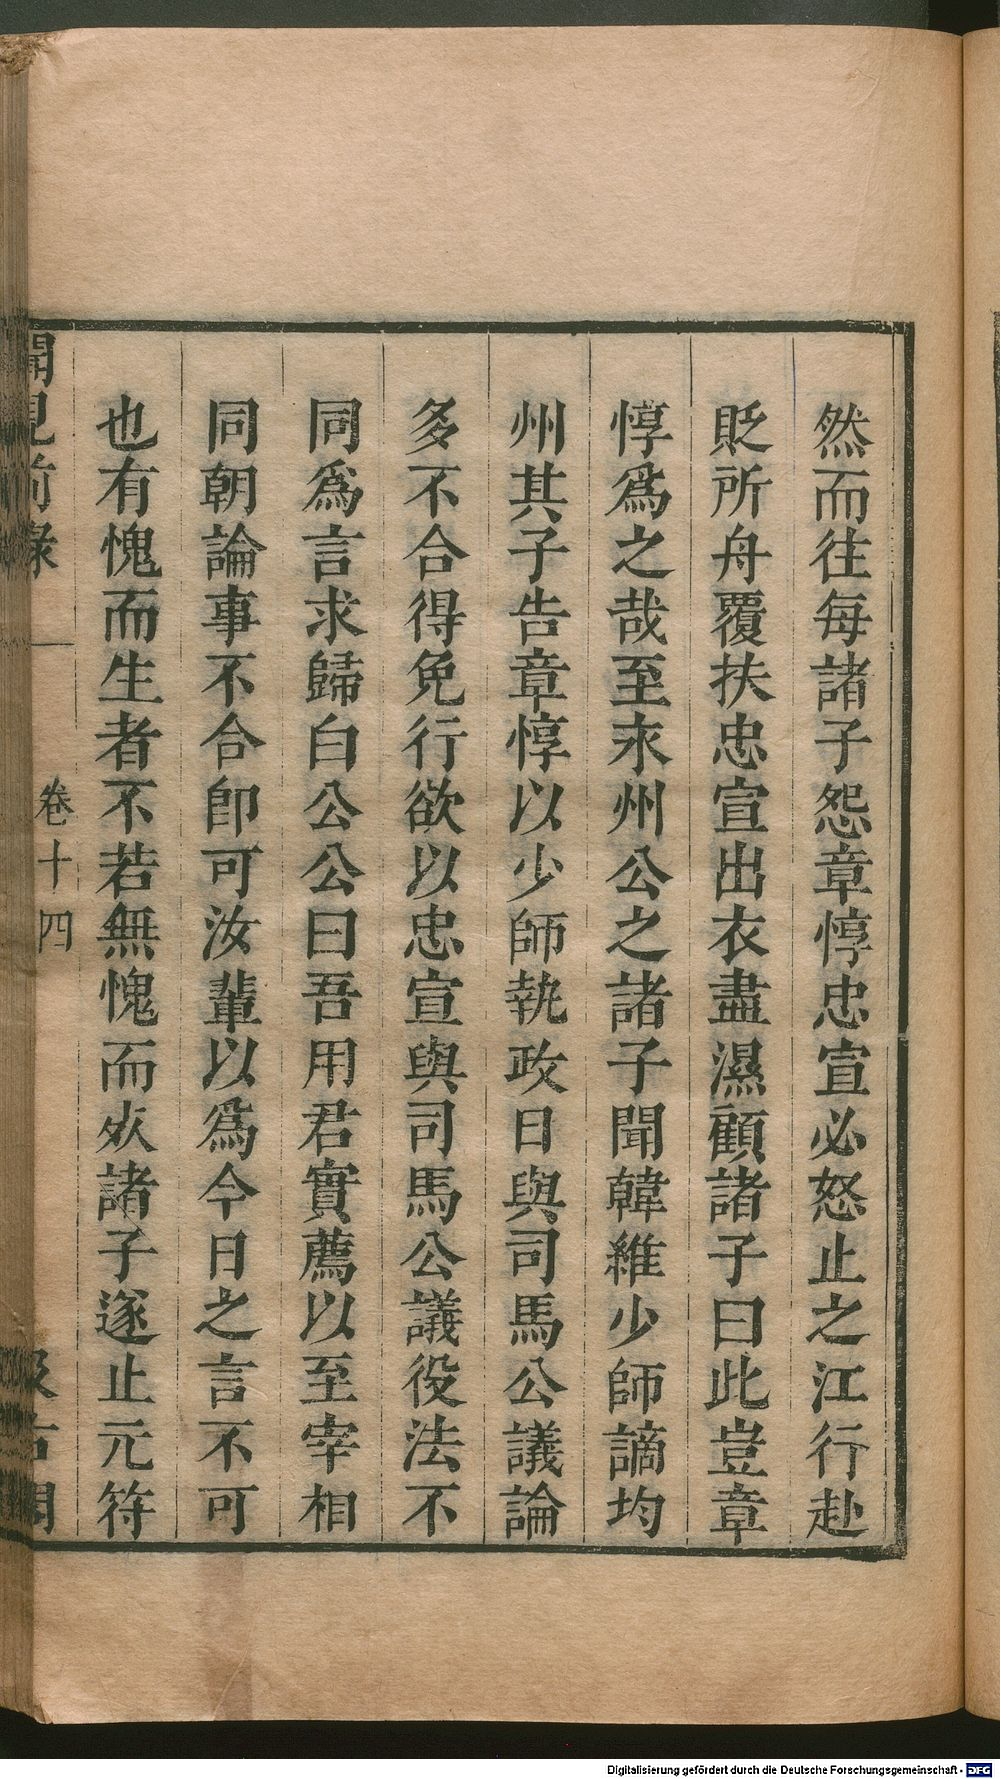 然而往每諸子怨章惇忠宣必怒止之江行赴
貶所舟覆扶忠宣出衣盡濕顧諸子曰此豈章
惇爲之哉至永州公之諸子聞韓維少師謫均
州其子告章惇以少師執政日與司馬公議論
多不合得免行欲以忠宣與司馬公議役法不
同爲言求歸白公公曰吾用君實薦以至宰相
同朝論事不合卽可汝輩以爲今日之言不可
也有愧而生者不若無愧而死諸子遂止元符
聞見前錄
卷十四
汲古閣
Digitalisierung gefördert durch die Deutsche Forschungsgemeinschaft - DFG